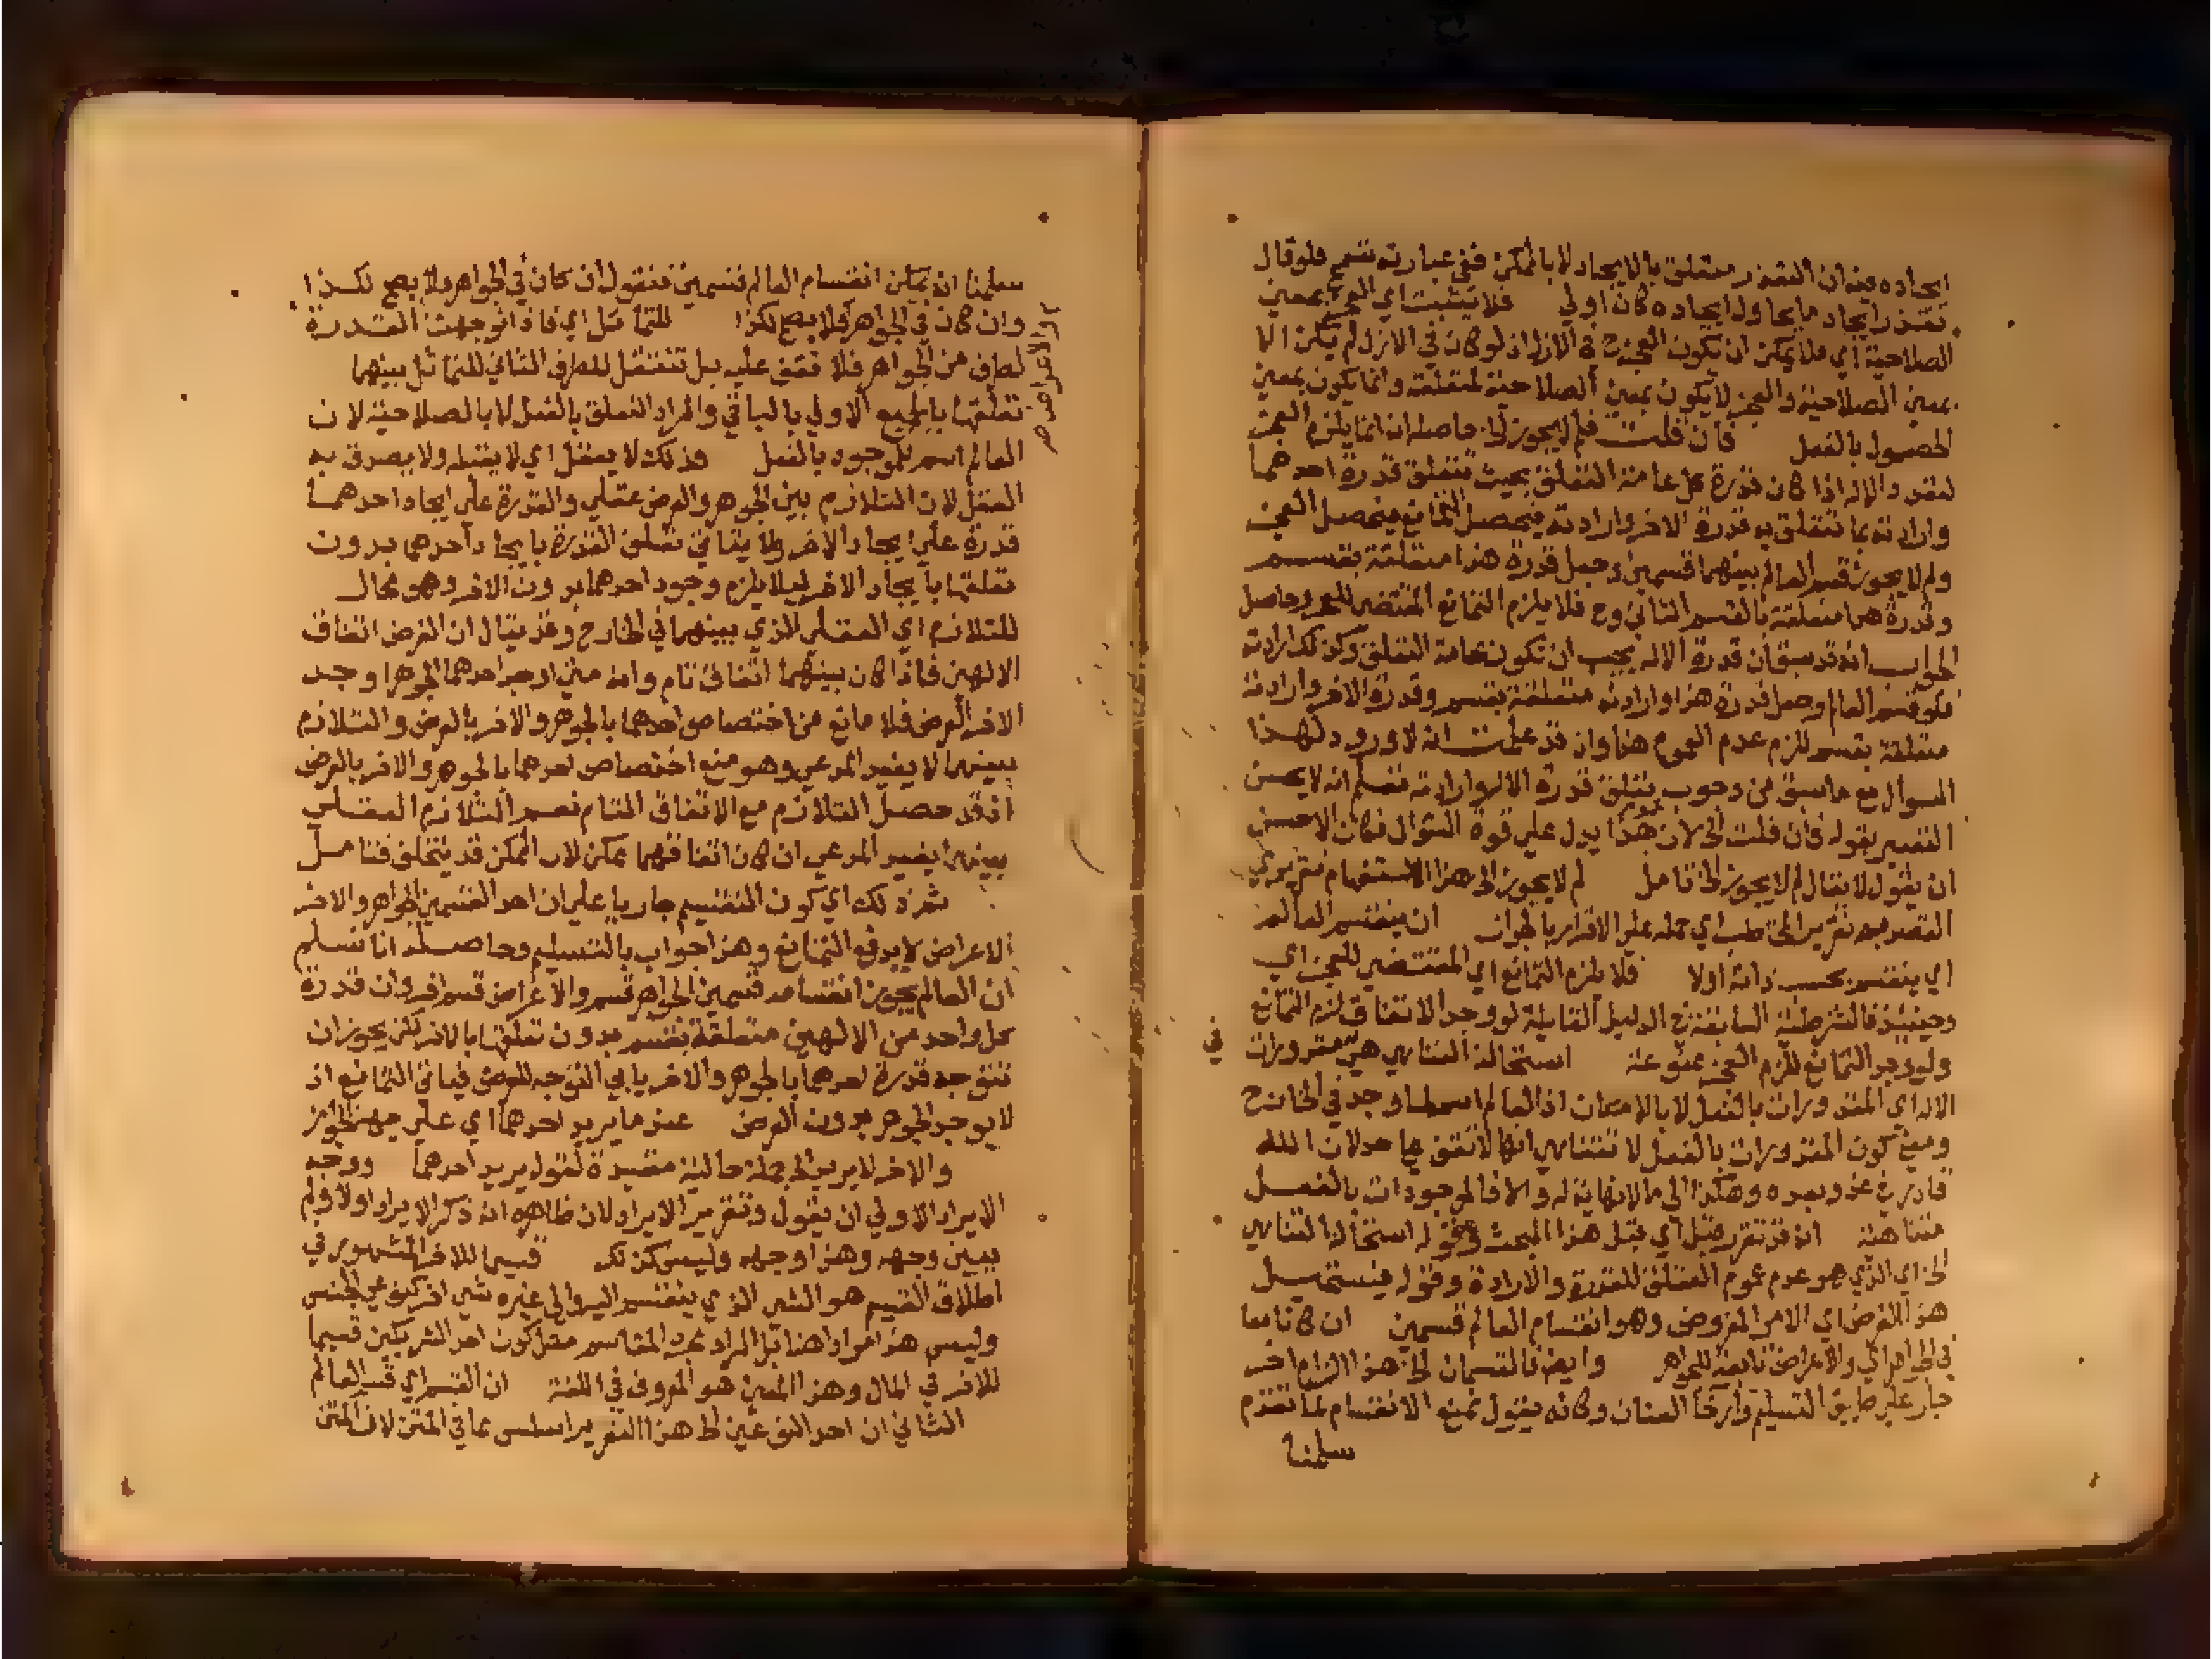 ايجاده فيه ان التعذر متعلق بالايجاد لا بالممكن ففي عبارته تسمح فلو قال
تعذر ايجاد ما يحاول ايجاده كان اولي فلا يثبت اي العجز بمعني
الصلاحية اي فلا يمكن ان يكون العجز ح في الازل اذ لو كان في الازل لم يكن الا
بمعني الصلاحية والعجز لا يكون بمعني الصلاحية لمتعلقه وانما يكون بمعني
الحصول بالفعل فان قلت فلم لا يجوز الخ حاصله انه انما يلزم العجز
لتعدد الاله اذا كان قدرة كل عامة التعلق بحيث تتعلق قدرة احدهما
وارادته بما تتعلق به قدرة الاخر وارادته فيحصل التمانع فيحصل العجز
ولم لا يجوز قسم العالم بينهما قسمين وجعل قدرة هذا متعلقة بقسم
وقدرة هذا متعلقة بالقسم الثاني وح فلا يلزم التمانع المقتضي للعجز وحاصل
الجواب انه قد سبق ان قدرة الاله يجب ان تكون عامة التعلق وكذلك ارادته
فلو قسم العالم وجعل قدرة هذا وارادته متعلقة بقسم وقدرة الاخر وارادته
متعلقة بقسم للزم عدم العموم هذا وان قد علمت انه لا ورود لهذا
السوال مع ما سبق من وجوب تعلق قدرة الاله وارادته تعلم انه لا يحسن
التعبير بقوله فان قلت الخ لان هذا يدل علي قوة السوال فكان الاحسن
ان يقول لا يقال لم لا يجوز الخ تامل لم لا يجوز الخ هذا الاستفهام تقريري
القصد به تقرير المخاطب اي حمله علي الاقرار بالجواب ان ينقسم العالم
اي ينقسم بحسب ذاته اولا فلا يلزم التمانع اي المقتضي للعجز اي
وحينئذ فالشرطية السابقة في الدليل القايلة لو وجد الاتفاق لزم التمانع
ولو وجد التمانع للزم العجز ممنوعة استحالة التناهي هي مقدورات
في
الاله اي المقدورات بالفعل لا بالامكان اذ العالم اسم لما وجد في الخارج
ومعني كون المقدورات بالفعل لا تتناهي انها لا تقف بها حد لان الله
قادر في غد وبعده وهكذا الي ما لا نهاية له والا فالموجودات بالفعل
متناهية انه قد تقرر قبل اي قبل هذا المبحث وقوله استحالة التناهي
الخ اي الذي هو عدم عموم التعلق للقدرة والارادة وقوله فيستحيل
هذا الفرض اي الامر المفروض وهو انقسام العالم قسمين ان كانا معا
في الجواهر اي والاعراض تابعة للجواهر وايضا فالقسمان الخ هذا الزام اخر
جار علي طريق التسليم وارخا العنان وكانه يقول نمنع الانقسام لما تقدم
سلمنا
سلمنا ان يمكن انقسام العالم قسمين فنقول ان كان في الجواهر فلا يصح لكذا
وان كان في الجواهر فلا يصح لكذا للتماثل اي فاذا توجهت القدرة
لطرف من الجواهر فلا تقف عليه بل تنتقل للطرف الثاني للتماثل بينهما
تعلقها بالجميع الاولي بالباقي والمراد التعلق بالفعل لا بالصلاحية لان
العالم اسم للموجود بالفعل وذلك لا يعقل اي لا يقبله ولا يصدق به
العقل لان التلازم بين الجوهر والعرض عقلي والقدرة علي ايجاد احدهما
قدرة علي ايجاد الاخر ولا يتاتي تعلق القدرة بايجاد احدهما بدون
تعلقها بايجاد الاخر ليلا يلزم وجود احدهما بدون الاخر وهو محال
للتلازم اي العقلي الذي بينهما في الخارج وقد يقال ان الفرض اتفاق
الالهين فاذا كان بينهما اتفاق تام وانه متي اوجد احدهما الجوهر اوجد
الاخر العرض فلا مانع من اختصاص احدهما بالجوهر والاخر بالعرض والتلازم
بينهما لا يفيد المدعي وهو منع اختصاص احدهما بالجوهر والاخر بالعرض
اذ قد حصل التلازم مع الاتفاق التام نعم التلازم العقلي
بينهما يفيد المدعي ان كان اتفاقهما ممكن لان الممكن قد يتخلف فتامل
ثم ذلك اي كون التقسيم جاريا علي ان احد القسمين الجواهر والاخر
الاعراض لا يدفع التمانع وهذا جواب بالتسليم وحاصله انا نسلم
ان العالم يجوز انقسامه قسمين الجواهر قسم والاعراض قسم اخر وان قدرة
كل واحد من الالهين متعلقة بقسم بدون تعلقها بالاخر لكن يجوز ان
تتوجه قدرة احدهما بالجوهر والاخر يابي التوجه للعرض فياتي التمانع اذ
لا يوجد الجوهر بدون العرض عند ما يريد احدهما اي علي جهة الجواز
والاخر لا يريد الجملة حالية مقيدة لقوله يريد احدهما ووجه
الايراد الاولي ان يقول وتقرير الايراد لان ظاهره انه ذكر الايراد اولا ولم
يبين وجهه وهذا وجهه وليس كذلك قسيما للاخر المشهور في
اطلاق القسيم هو الشي الذي ينقسم اليه والي غيره شي اخر
وليس هذا مرادا هنا بل المراد به المقاسم مثل كون احد الشريكين قسيما
للاخر في المال وهذا المعني هو المعروف في اللغة ان القسم اي قسم العالم
الثاني ان احد النوعين هذا التقرير اسلس مما في المتن لان المتن
والاعراض صح